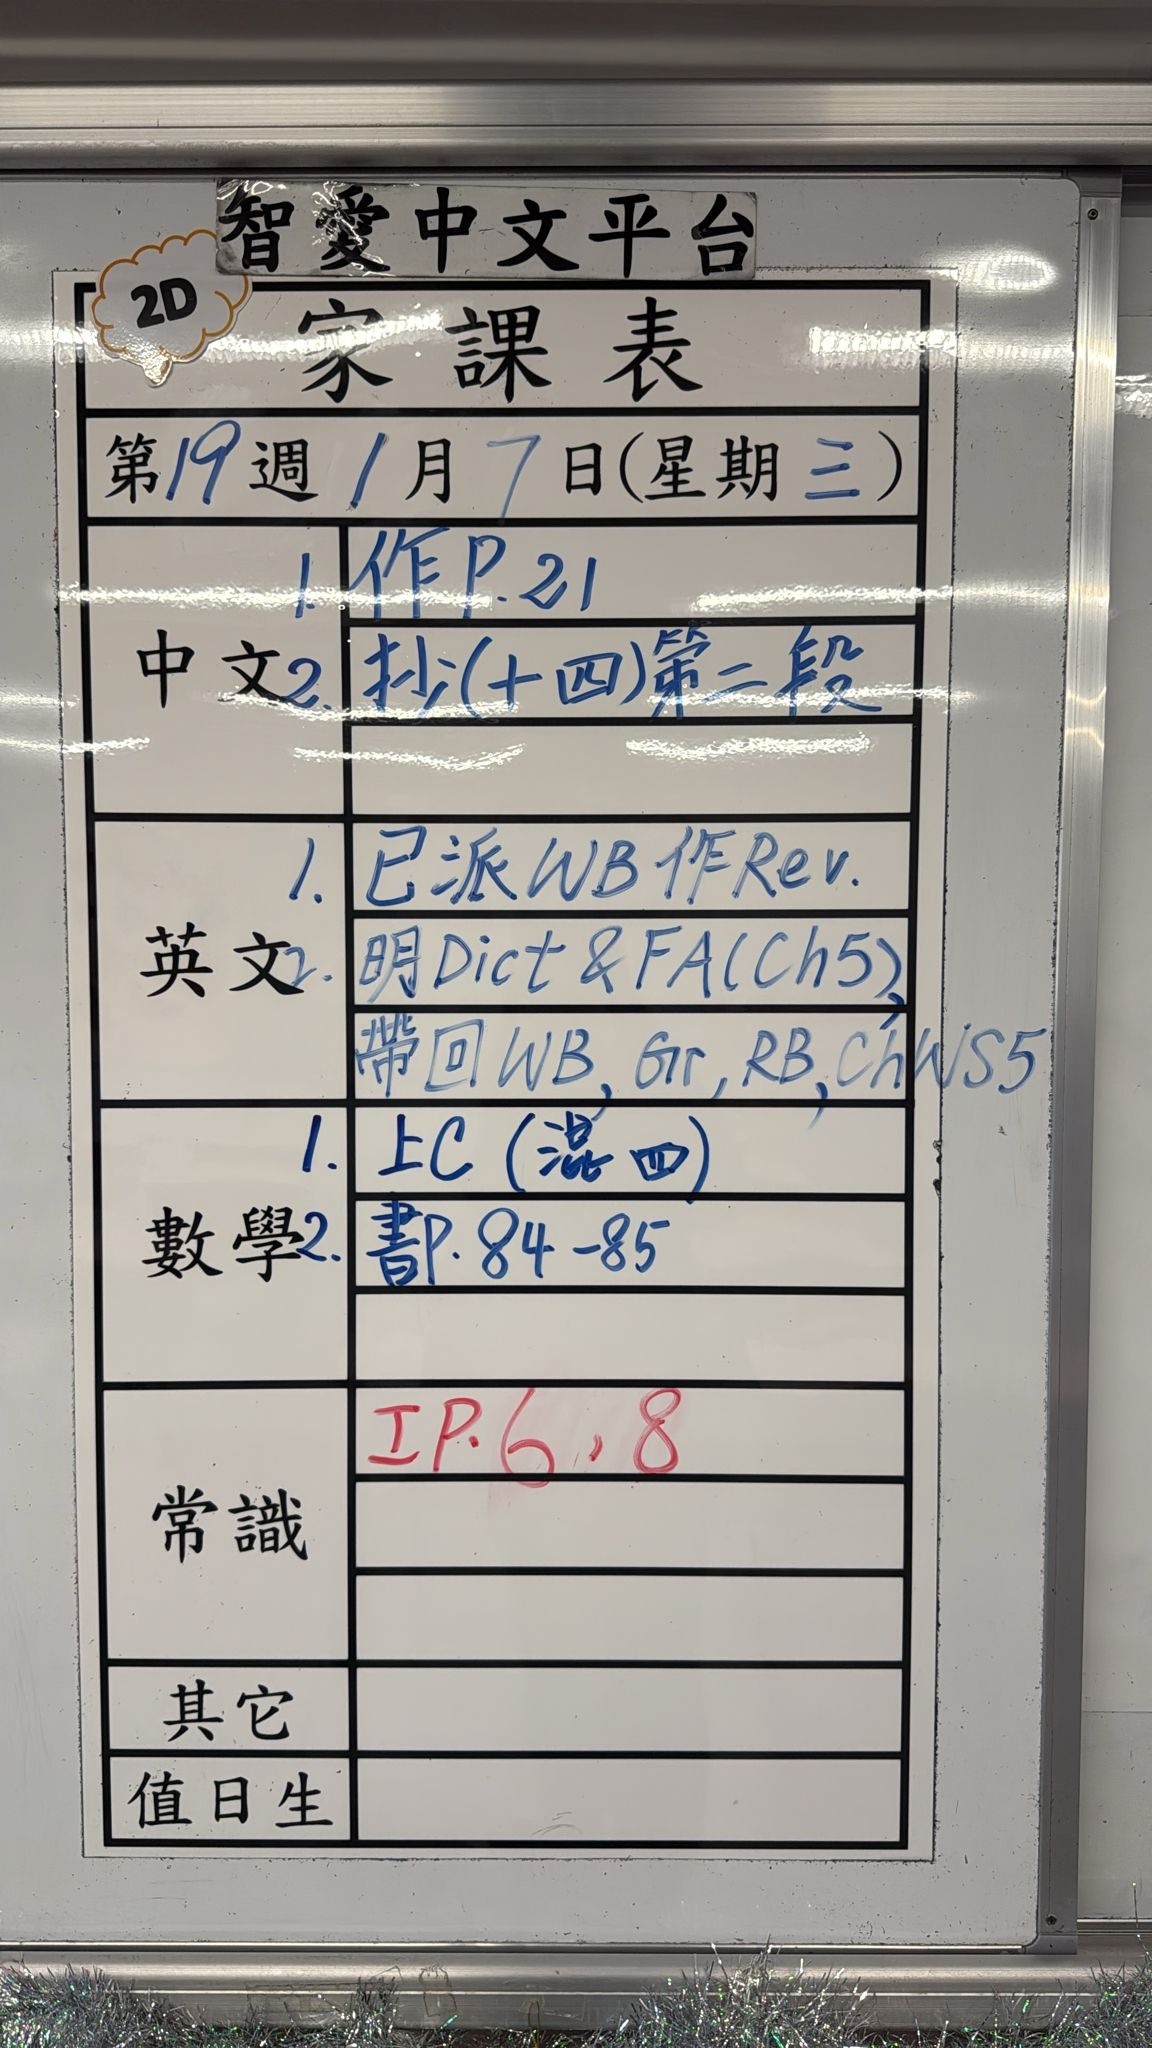 智愛中文平台
2D
家課表
第19週 1月7日(星期三)
中文
1. 作P.21
2. 抄(十四)第二段
英文
1. 已派WB作Rev.
2. 明Dict & FA(Ch5),
帶回WB, Gr, RB, ChWS5
數學
1. 上C (混四)
2. 書P. 84-85
常識
IP. 6, 8
其它
值日生